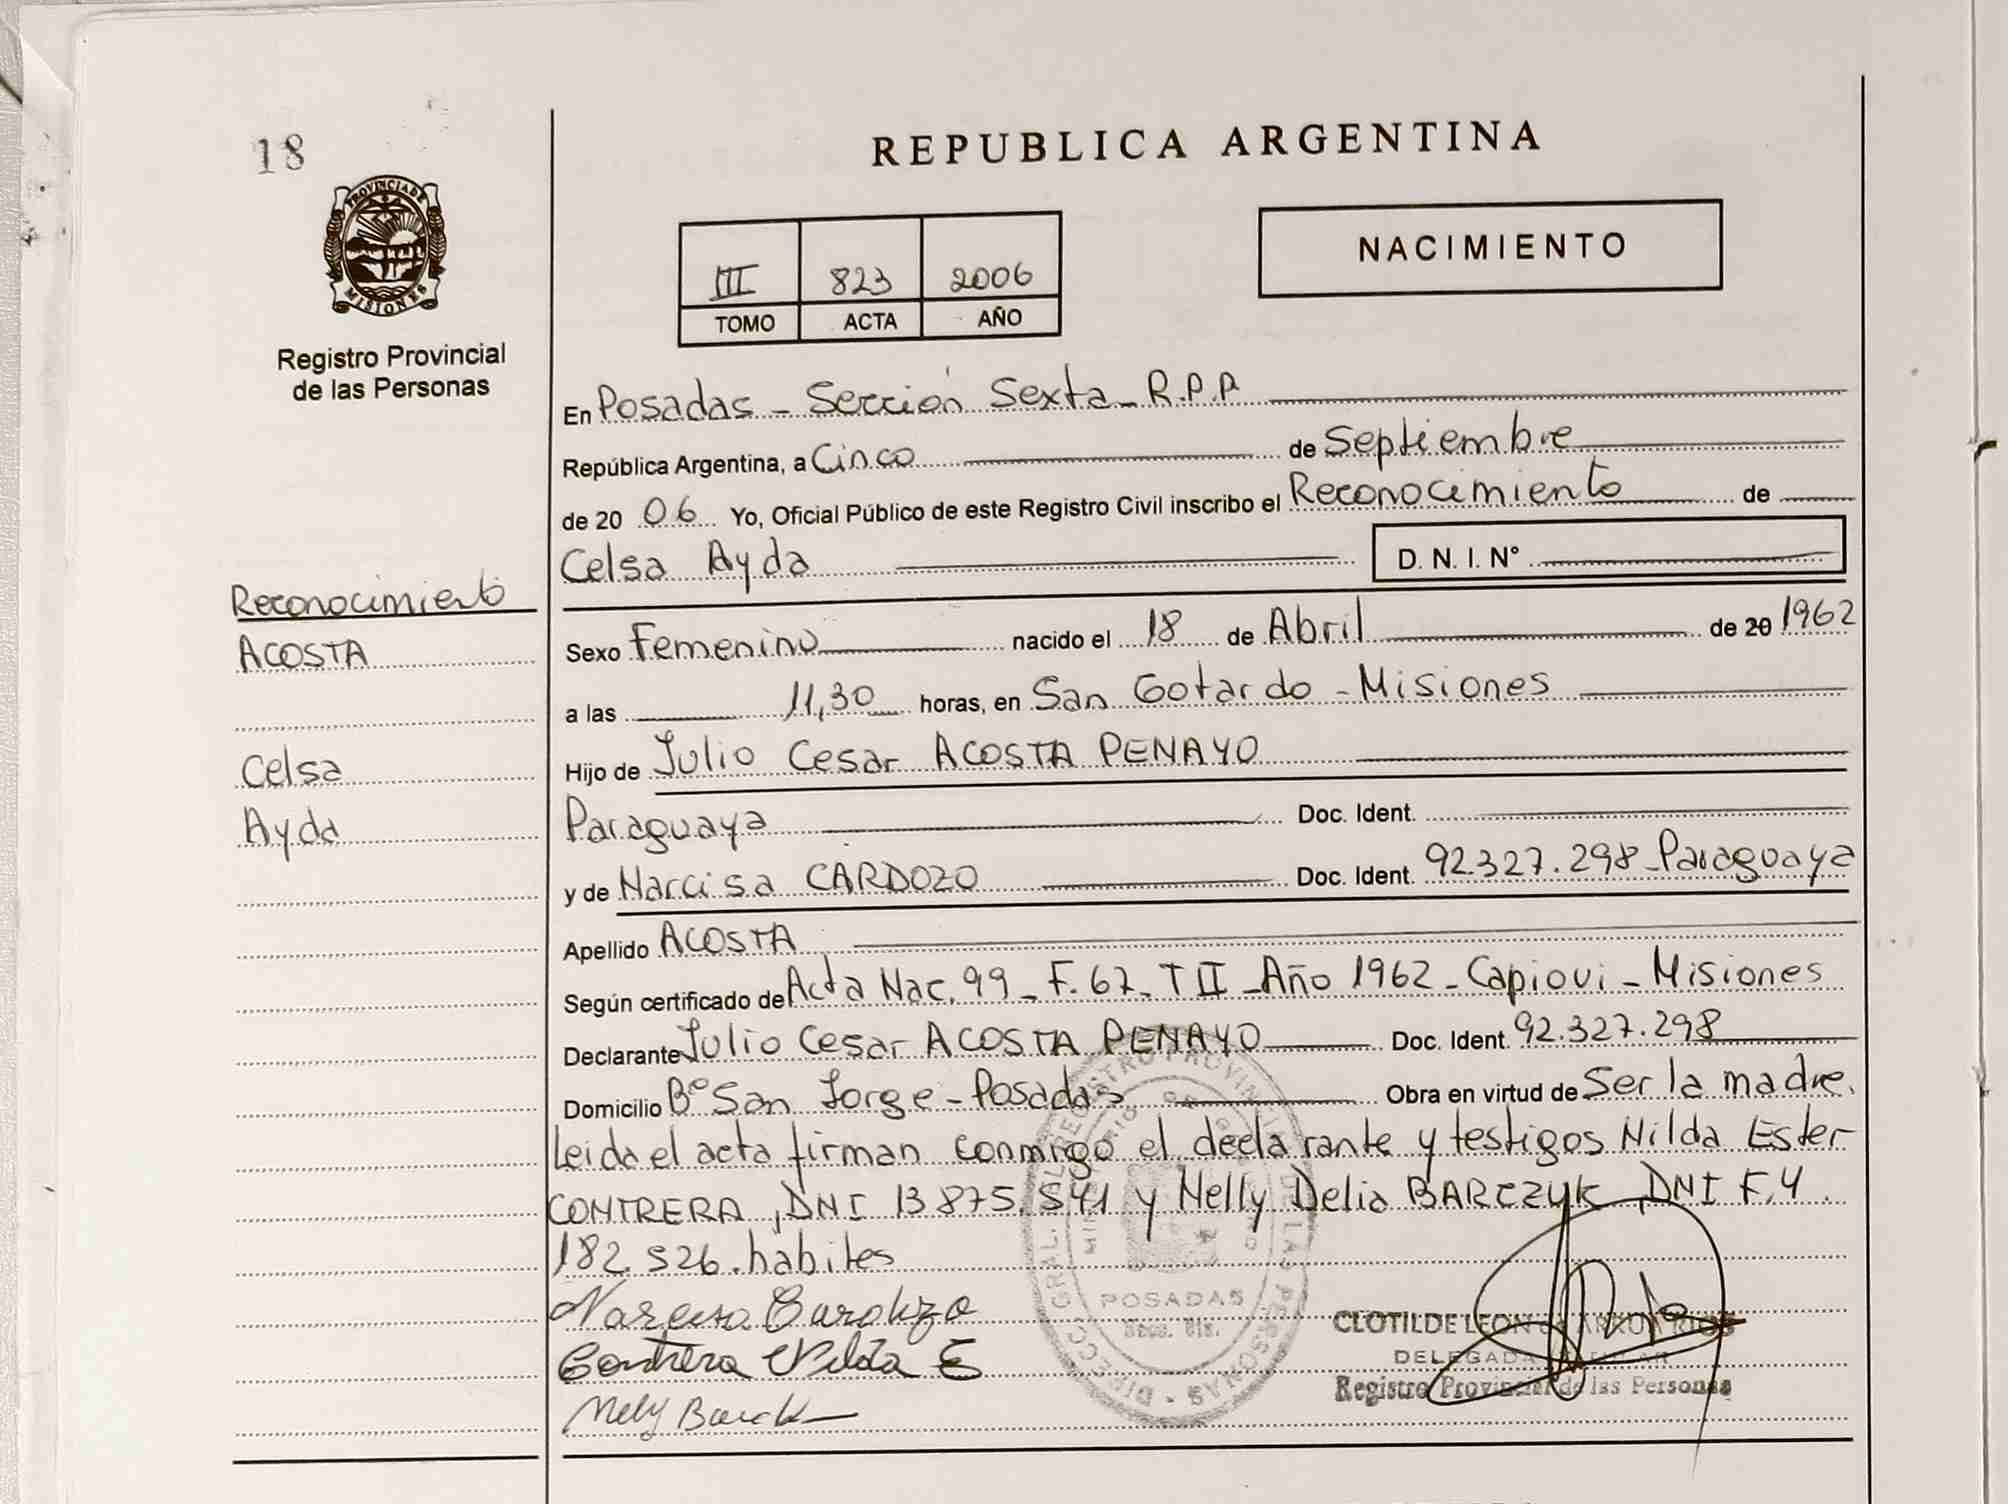 18
PROVINCIA DE
MISIONES
Registro Provincial
de las Personas
REPUBLICA ARGENTINA
III 823 2006
TOMO ACTA AÑO
NACIMIENTO
En Posadas - Sección Sexta - R.P.P
República Argentina, a Cinco de Septiembre
de 20 06 Yo, Oficial Público de este Registro Civil inscribo el Reconocimiento de
Celsa Ayda D. N. I. N°
Reconocimiento
ACOSTA
Celsa
Ayda
Sexo Femenino nacido el 18 de Abril de 20 1962
a las 11,30 horas, en San Gotardo - Misiones
Hijo de Julio Cesar ACOSTA PENAYO
Paraguaya Doc. Ident.
y de Narcisa CARDOZO Doc. Ident. 92.327.298 - Paraguaya
Apellido ACOSTA
Según certificado de Acta Nac. 99 - F. 67 - T II - Año 1962 - Capiovi - Misiones
Declarante Julio Cesar ACOSTA PENAYO Doc. Ident. 92.327.298
Domicilio B° San Jorge - Posadas Obra en virtud de Ser la madre.
Leida el acta firman conmigo el declarante y testigos Nilda Ester
CONTRERA, DNI 13.875.541 y Nelly Delia BARCZYK, DNI F.4.
182.526. habiles
Narcisa Cardozo
Contrera Nilda E
Nely Barck
POSADAS
CLOTILDE LEON
DELEGADA
Registro Provincial de las Personas